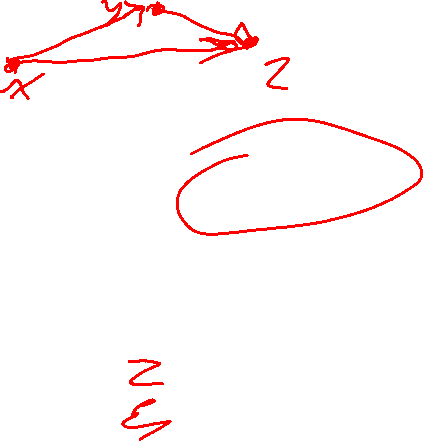 y
x
z
z